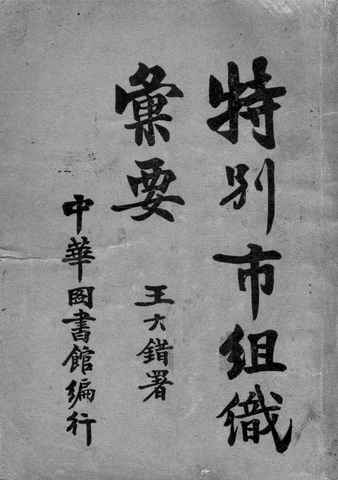 特別市組織
彙要
王大錯署
中華圖書館編行